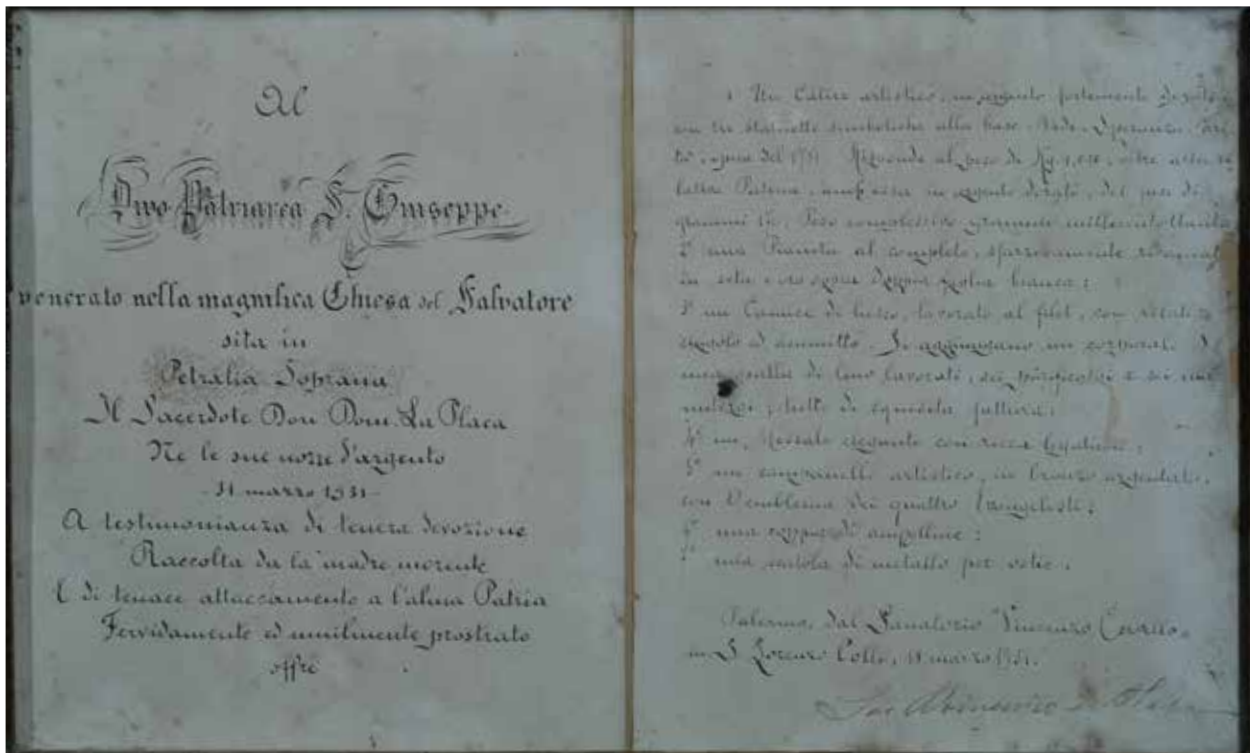 Al
Divo Patriarca S. Giuseppe
venerato nella magnifica Chiesa del Salvatore
sita in
Petralia Soprana
Il Sacerdote Don Dom. La Placa
Ne le sue nozze d'argento
- 31 marzo 1931 -
A testimonianza di tenera devozione
Raccolta da la madre morente
E di tenace attaccamento a l'alma Patria
Fervidamente ed umilmente prostrato
offre
1 Un Calice artistico, in argento fortemente dorato,
con tre statuette simboliche alla base, Fede, Speranza, Cari-
tà, opera del Risponde al peso di Kg. oltre
Patena, in argento dorato, del peso di
grammi Peso complessivo grammi
2° una Pianeta al completo,
in seta e oro sopra bianca;
3° un Camice di lavorato al filet, con relativo
cingolo ed ammitto. Si aggiungano un corporale
una palla di lino lavorati, sei purificatoi e sei
tutto di squisita fattura;
4° un Messale elegante con ricca legatura;
5° un campanello artistico, in bronzo argentato,
con l'emblema dei quattro Evangelisti;
6° una coppia di ampolline;
7° una scatola di metallo per ostie.
Palermo, dal Sanatorio "Vincenzo Cervello"
in S. Lorenzo Colli, marzo 1931.
Sac Domenico La Placa